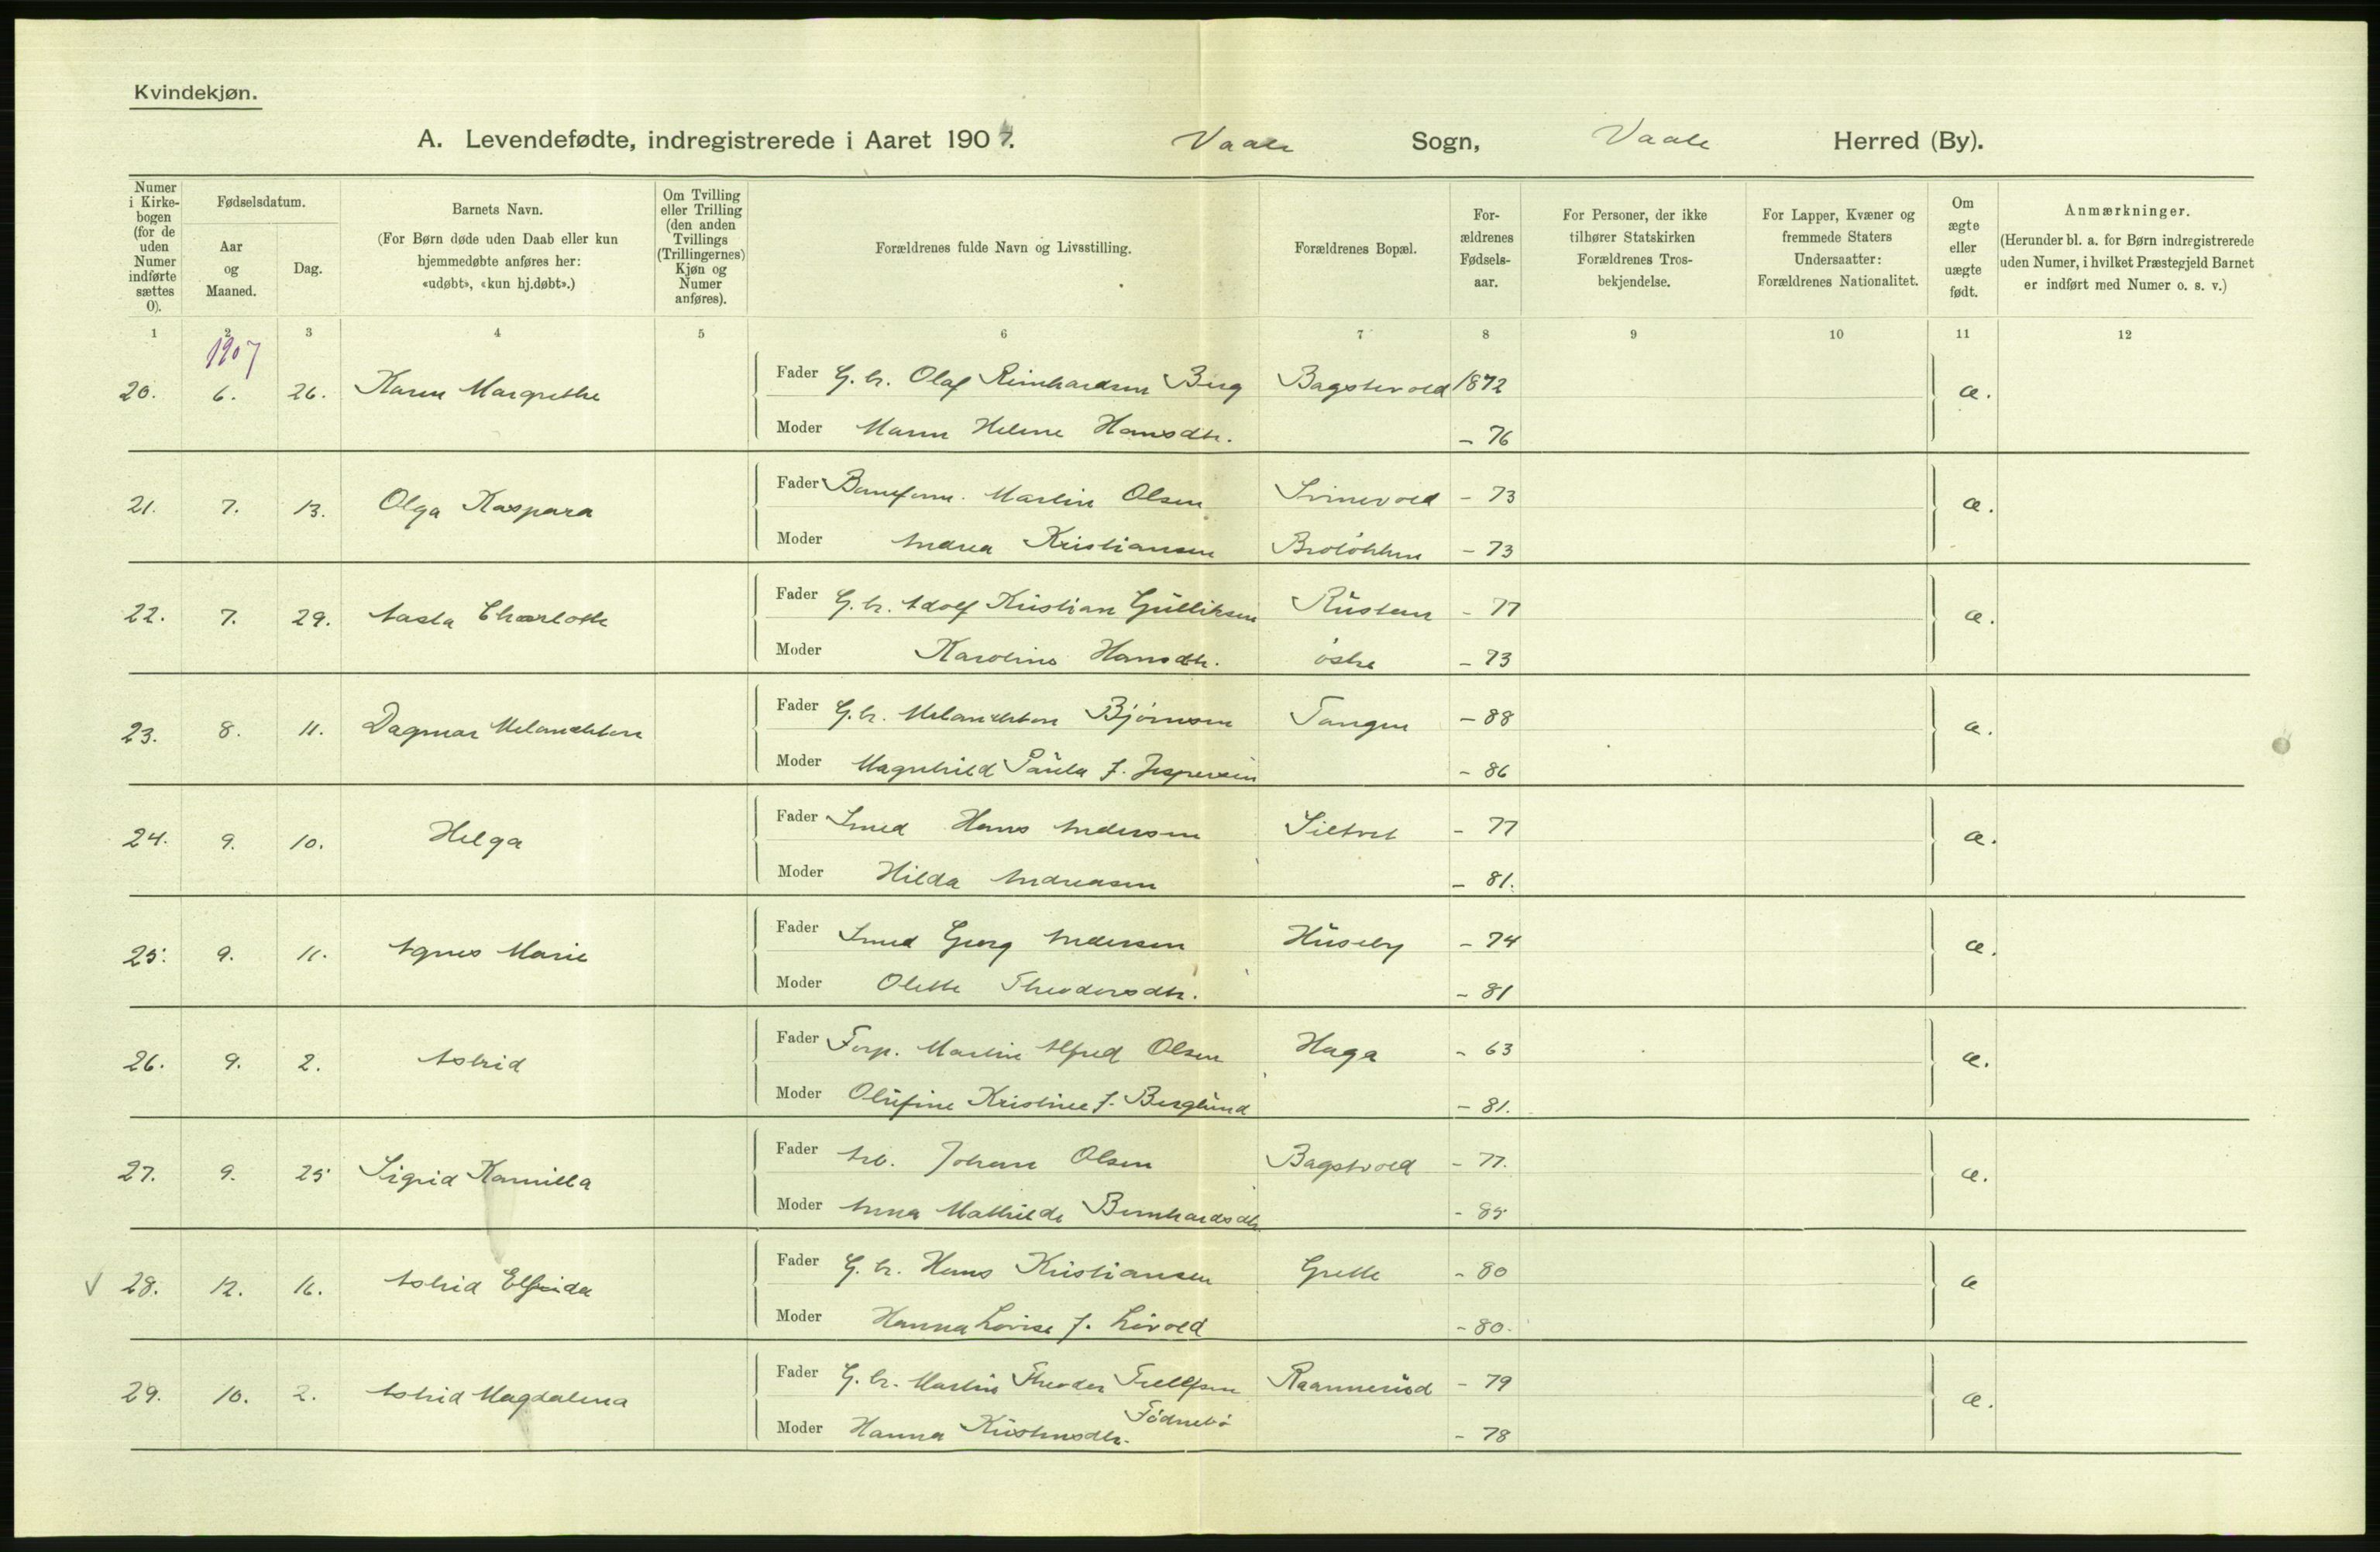 Kvindekjøn.
A. Levendefødte, indregistrerede i Aaret 1907. Vaale Sogn, Vaale Herred (By).
Numer i Kirkebogen (for de uden Numer indførte sættes 0).
Fødselsdatum.
Aar og Maaned.
Dag.
Barnets Navn.
(For Børn døde uden Daab eller kun hjemmedøbte anføres her: «udøbt», «kun hj.døbt».)
Om Tvilling eller Trilling (den anden Tvillings (Trillingernes) Kjøn og Numer anføres).
Forældrenes fulde Navn og Livsstilling.
Forældrenes Bopæl.
Forældrenes Fødselsaar.
For Personer, der ikke tilhører Statskirken Forældrenes Trosbekjendelse.
For Lapper, Kvæner og fremmede Staters Undersaatter: Forældrenes Nationalitet.
Om ægte eller uægte født.
Anmærkninger.
(Herunder bl. a. for Børn indregistrerede uden Numer, i hvilket Præstegjeld Barnet er indført med Numer o. s. v.)
1 2 3 4 5 6 7 8 9 10 11 12
1907
20. 6. 26. Karen Margrethe Fader G. br. Olaf Reinhardsen Berg Bagstevold 1872 æ.
Moder Maren Helene Hansdtr. - 76
21. 7. 13. Olga Kaspara Fader Baneform. Martin Olsen Svinevold - 73 æ.
Moder Andrea Kristiansen Broløkken - 73
22. 7. 29. Aasta Charlotte Fader G. br. Adolf Kristian Gulliksen Rustan - 77 æ.
Moder Karoline Hansdtr. østre - 73
23. 8. 11. Dagmar Melanchton Fader G. br. Melanchton Bjørnsen Tangen - 88 æ.
Moder Magnhild Paula f. Jespersen - 86
24. 9. 10. Helga Fader Smed Hans Andersen Siltvet - 77 æ.
Moder Hilda Andreasen - 81.
25. 9. 11. Agnes Marie Fader Smed Georg Andersen Huseby - 74 æ.
Moder Olette Theodorsdtr. - 81
26. 9. 2. Astrid Fader Forp. Martin Alfred Olsen Haga - 63 æ.
Moder Olufine Kristine f. Berglund - 81.
27. 9. 25 Sigrid Kamilla Fader Arb. Johan Olsen Bagstvold - 77. æ.
Moder Anna Mathilde Bernhardsdtr. - 85
V 28. 12. 16. Astrid Elfrida Fader G. br. Hans Kristiansen Grette - 80 æ
Moder Hanna Lovise f. Livold - 80.
29. 10. 2. Astrid Magdalena Fader G. br. Martin Theodor Trellfsen Raannerud - 79 æ.
Moder Hanna Kristensdtr. Fødnebø - 78